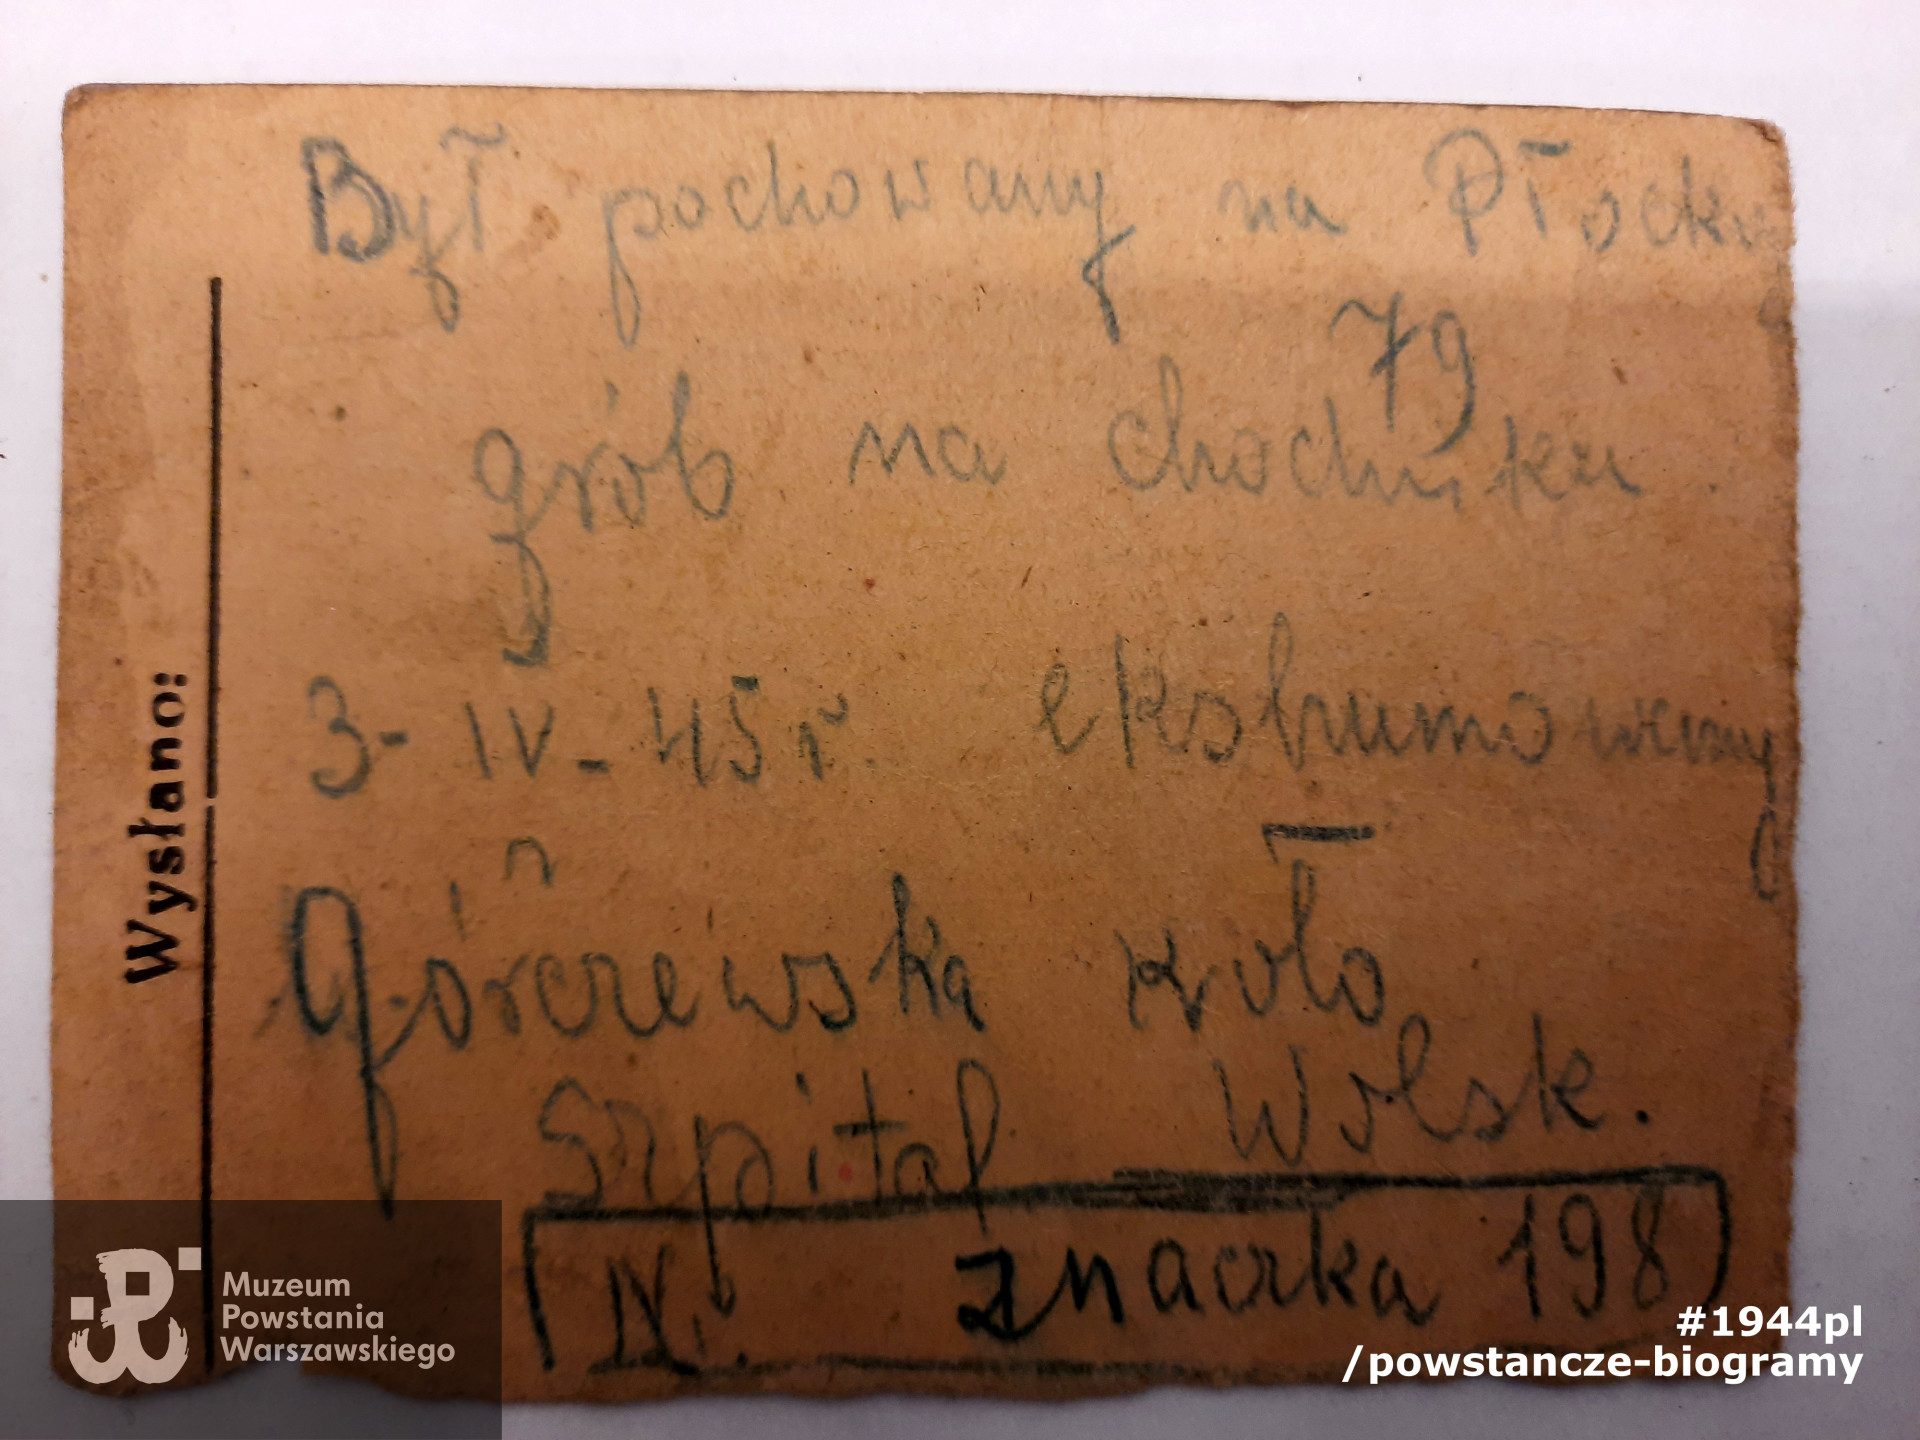 Był pochowany na Płocki
79
grób na chodniku.
3-IV-45r. ekshumowany
Górczewska koło
Szpital Wolsk.
N. znaczka 198
Wysłano:
Muzeum
Powstania
Warszawskiego
#1944pl
/powstancze-biogramy